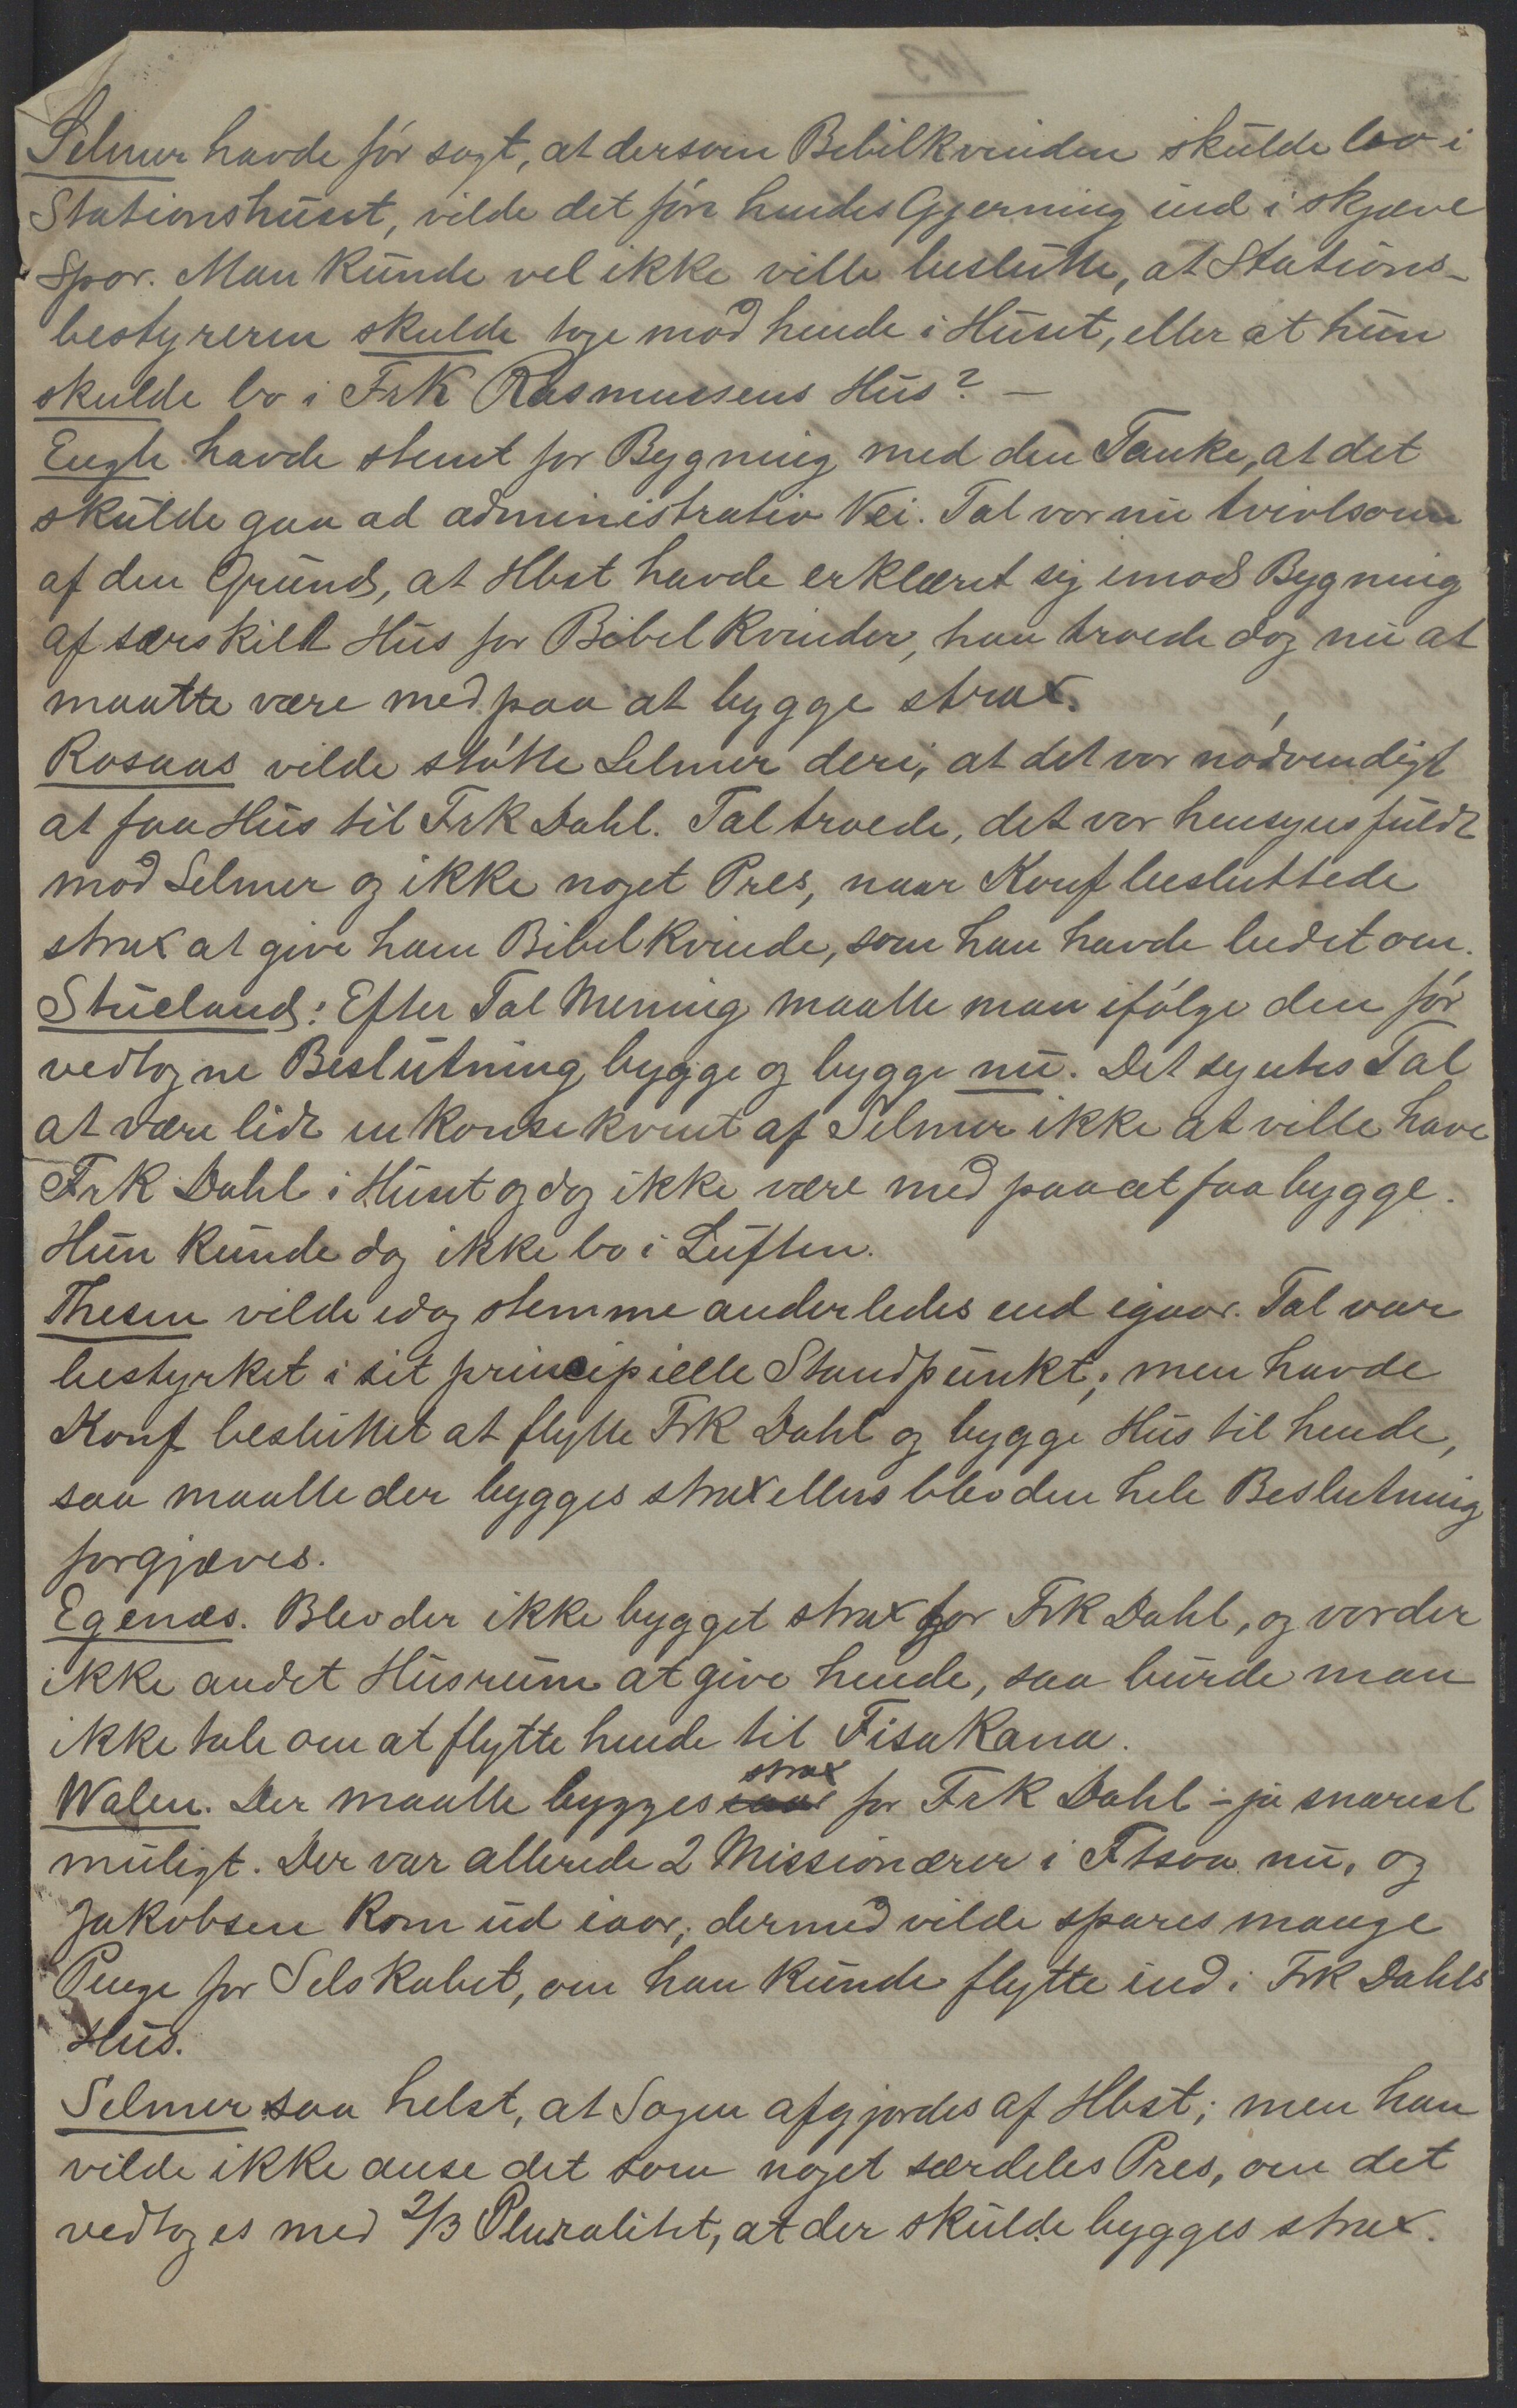 Selmer havde før sagt, at dersom Bibelkvinden skulde bo i
Stationshuset, vilde det føre hendes Gjerning ind i skjæve
Spor. Man kunde vel ikke ville beslutte, at Stations-
bestyreren skulde tage mod hende i Huset, eller at hun
skulde bo i Frk Rasmussens Hus? —
Engh havde stemt for Bygning med den Tanke, at det
skulde gaa ad administrativ Vei. Tal var nu tvivlsom
af den Grund, at Hbst havde erklæret sig imod Bygning
af særskilt Hus for Bibelkvinder, han troede dog nu at
maatte være med paa at bygge strax.
Rosaas vilde støtte Selmer deri, at det var nødvendigt
at faa Hus til Frk Dahl. Tal troede, det var hensynsfuldt
mod Selmer og ikke noget Pres, naar Konf besluttede
strax at give ham Bibelkvinde, som han havde bedet om.
Stueland: Efter Tal Mening maatte man ifølge den før
vedtagne Beslutning bygge og bygge nu. Det syntes Tal
at være lidt inkonsekvent af Selmer ikke at ville have
Frk Dahl i Huset og dog ikke være med paa at faa bygge.
Hun kunde dog ikke bo i Luften.
Thesen vilde idag stemme anderledes end igaar. Tal var
bestyrket i sit principielle Standpunkt; men havde
Konf besluttet at flytte Frk Dahl og bygge Hus til hende,
saa maatte der bygges strax ellers blev den hele Beslutning
forgjæves.
Egenæs. Blev der ikke bygget strax for Frk Dahl, og var der
ikke andet Husrum at give hende, saa burde man
ikke tale om at flytte hende til Fisakana.
Walen. Der maatte bygges strax for Frk Dahl – ja snarest
muligt. Der var allerede 2 Missionærer i Ftsoa nu, og
Jakobsen kom ud iaar; dermed vilde spares mange
Penge for Selskabet, om han kunde flytte ind i Frk Dahls
Hus.
Selmer saa helst, at Sagen afgjordes af Hbst; men han
vilde ikke anse det som noget særdeles Pres, om det
vedtoges med 2/3 Pluralitet, at der skulde bygges strax.